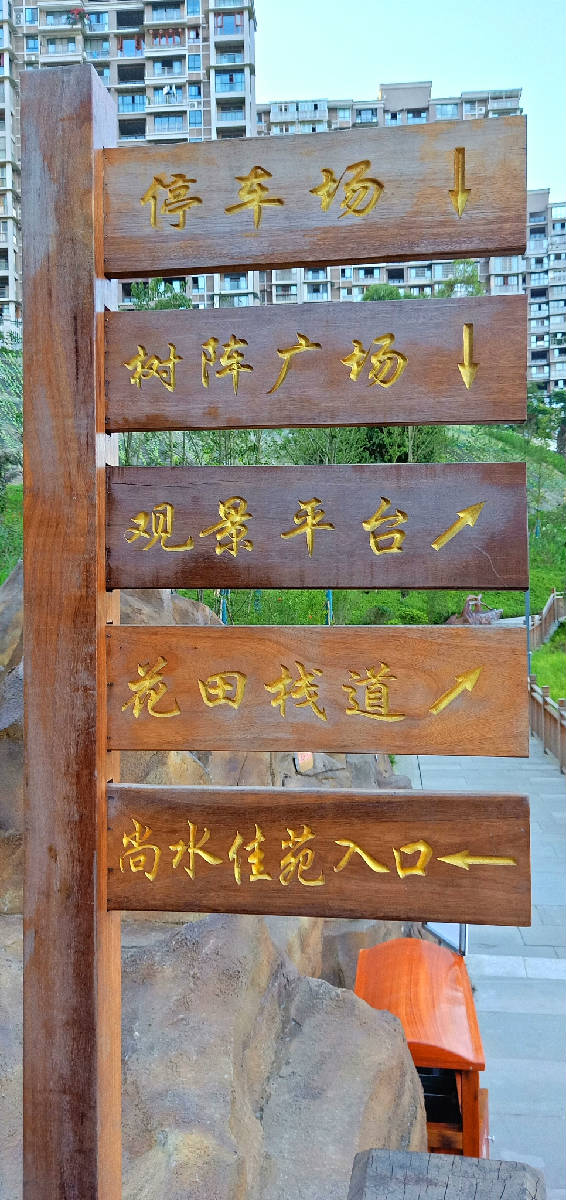 停车场 ↓
树阵广场 ↓
观景平台 ↗
花田栈道 ↗
尚水佳苑入口 ←